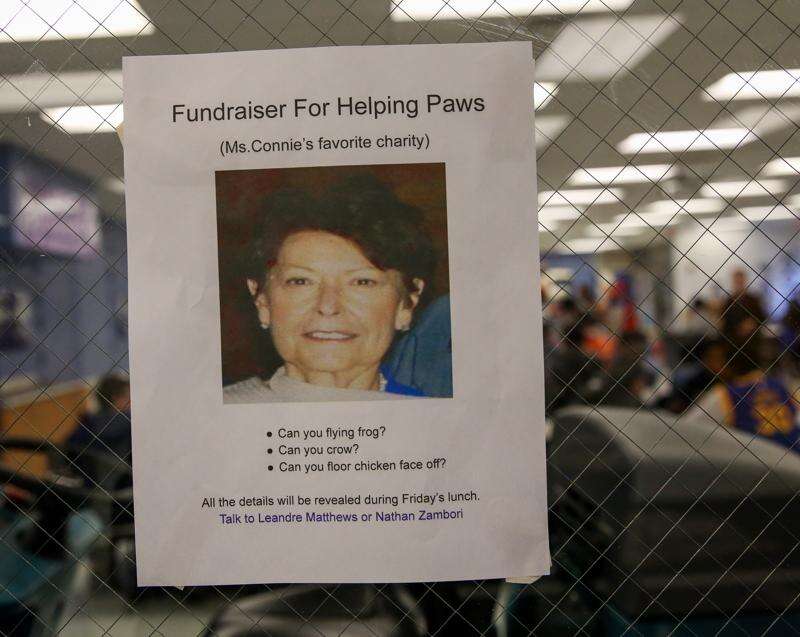 Fundraiser For Helping Paws
(Ms.Connie's favorite charity)
• Can you flying frog?
• Can you crow?
• Can you floor chicken face off?
All the details will be revealed during Friday's lunch.
Talk to Leandre Matthews or Nathan Zambori